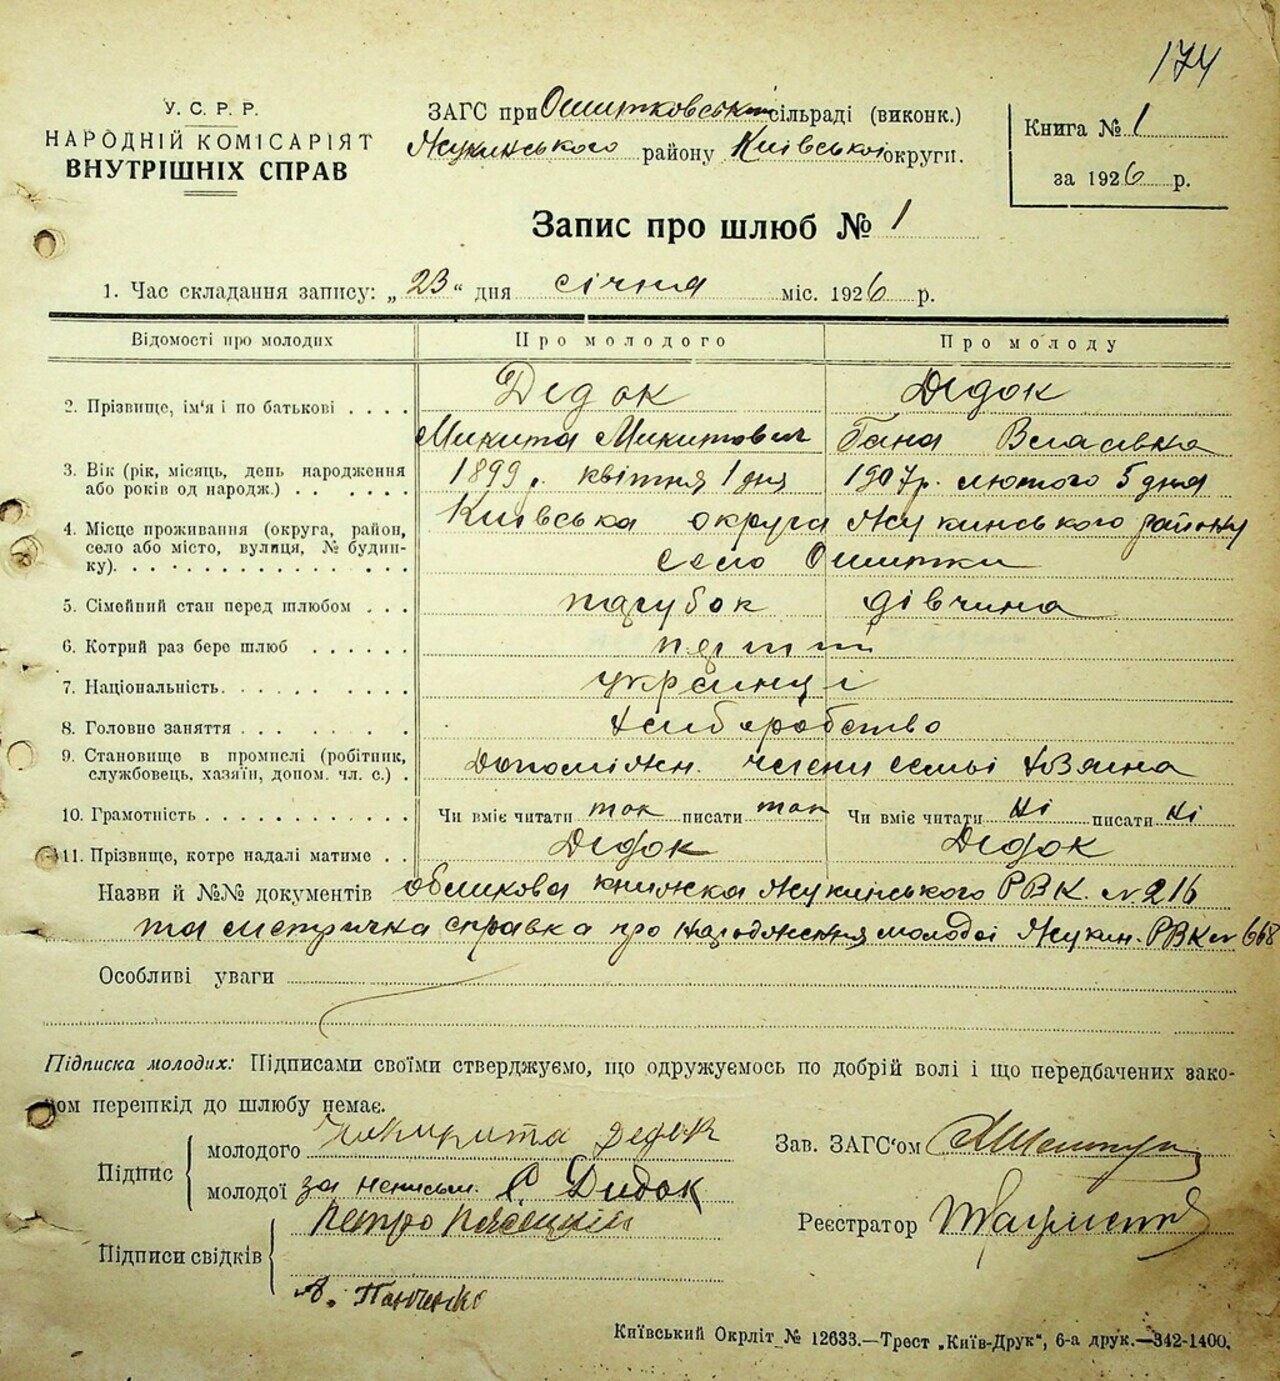 174
У. С. Р. Р.
НАРОДНІЙ КОМІСАРІЯТ
ВНУТРІШНІХ СПРАВ
ЗАГС при Ошитковській сільраді (виконк.)
Жукинського району Київської округи.
Книга № 1
за 1926 р.
Запис про шлюб № 1
1. Час складання запису: „23“ дня січня міс. 1926 р.
Відомості про молодих Про молодого Про молоду
2. Прізвище, ім'я і по батькові . . . . Дєдок Дєдок
Микита Микитович Гана Власівна
3. Вік (рік, місяць, день народження
або років од народж.) . . . . . . 1899 р. квітня 1 дня 1907 р. лютого 5 дня
4. Місце проживання (округа, район,
село або місто, вулиця, № будин-
ку). . . . . . . . . . . . . . . Київська округа Жукинського району
село Ошитки
5. Сімейний стан перед шлюбом . . . парубок дівчина
6. Котрий раз бере шлюб . . . . . . перший
7. Національність. . . . . . . . . . українці
8. Головне заняття . . . . . . . . хліборобство
9. Становище в промислі (робітник,
службовець, хазяїн, допом. чл. с.) . Допоміжн. члени семьі
10. Грамотність . . . . . . . . . . . Чи вміє читати так писати так Чи вміє читати ні писати ні
11. Прізвище, котре надалі матиме . . Дєдок Дєдок
Назви й №№ документів облікова книжка Жукинського РВК. № 216
та метрична справка про народження молодої Жукин. РВК № 668
Особливі уваги
Підписка молодих: Підписами своїми стверджуємо, що одружуємось по добрій волі і що передбачених зако-
ном перешкід до шлюбу немає.
Підпис
молодого Дедок
молодої за неписьм. С. Дидок
Зав. ЗАГС'ом
Реєстратор
Підписи свідків
Петро
А. Панченко
Київський Окрліт № 12633.—Трест „Київ-Друк“, 6-а друк.—342-1400.